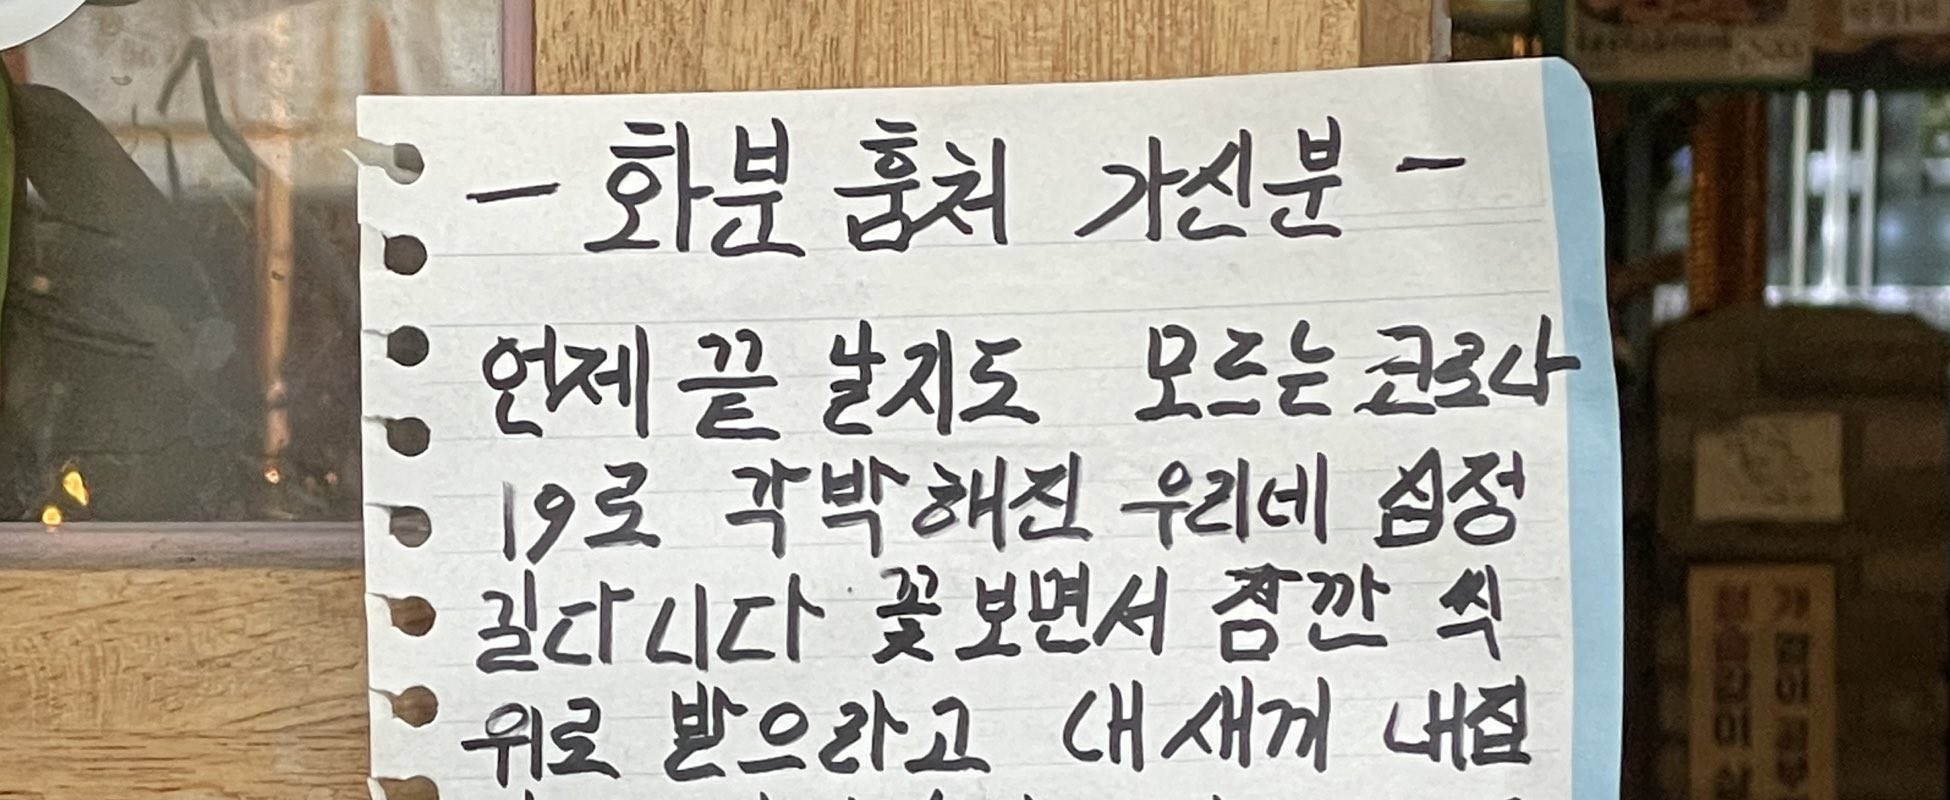 - 화분 훔쳐 가신분 -
언제 끝 날지도 모르는 코로나
19로 각박해진 우리네 심정
길다니다 꽃보면서 잠깐 씩
위로 받으라고 내새끼 내집